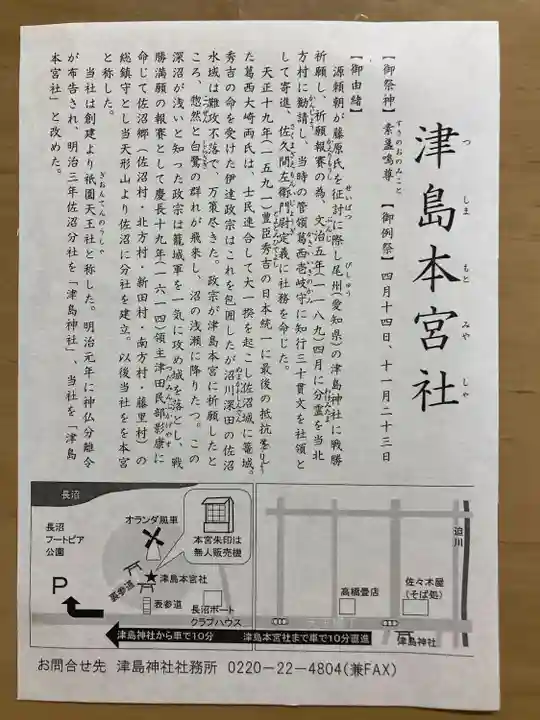 津島本宮社
つ しま もと みや しゃ
【御祭神】 素盞鳴尊 【御例祭】 四月十四日、十一月二十三日
すさのおのみこと
【御由緒】
源頼朝が藤原氏を征討に際し尾州(愛知県)の津島神社に戦勝
せいばつ びしゅう
祈願し、祈願報賽の為、文治五年(一一八九)四月に分霊を当北
方村に勧請し、当時の管領葛西壱岐守に知行三十貫文を社領と
かんじょう かさいいきのかみ
して寄進、佐久間左衛門尉定義に社務を命じた。
天正十九年(一五九一)豊臣秀吉の日本統一に最後の抵抗を
た葛西大崎両氏は、士民連合して大一揆を起こし佐沼城に籠城。
秀吉の命を受けた伊達政宗はこれを包囲したが沼川深田の佐沼
水域は難攻不落で、万策尽きた。政宗が津島本宮に祈願したと
ころ、忽然と白鷺の群れが飛来し、沼の浅瀬に降りたつ。この
深沼が浅いと知った政宗は籠城軍を一気に攻め城を落とし、戦
勝満願の報賽として慶長十九年(一六一四)領主津田民部影康に
命じて佐沼郷(佐沼村・北方村・新田村・南方村・藤里村)の
総鎮守とし当天形山より佐沼に分社を建立。以後当社をを本宮
と称した。
当社は創建より祇園天王社と称した。明治元年に神仏分離令
ぎおんてんのうしゃ
が布告され、明治三年佐沼分社を「津島神社」、当社を「津島
本宮社」と改めた。
長沼
オランダ風車
長沼
フートピア
公園
本宮朱印は
無人販売機
P
津島本宮社
表参道
裏参道
長沼ボート
クラブハウス
迫川
高橋畳店
佐々木屋
(そば処)
津島神社
津島神社から車で10分
津島本宮社まで車で10分直進
お問合せ先 津島神社社務所 0220-22-4804(兼FAX)